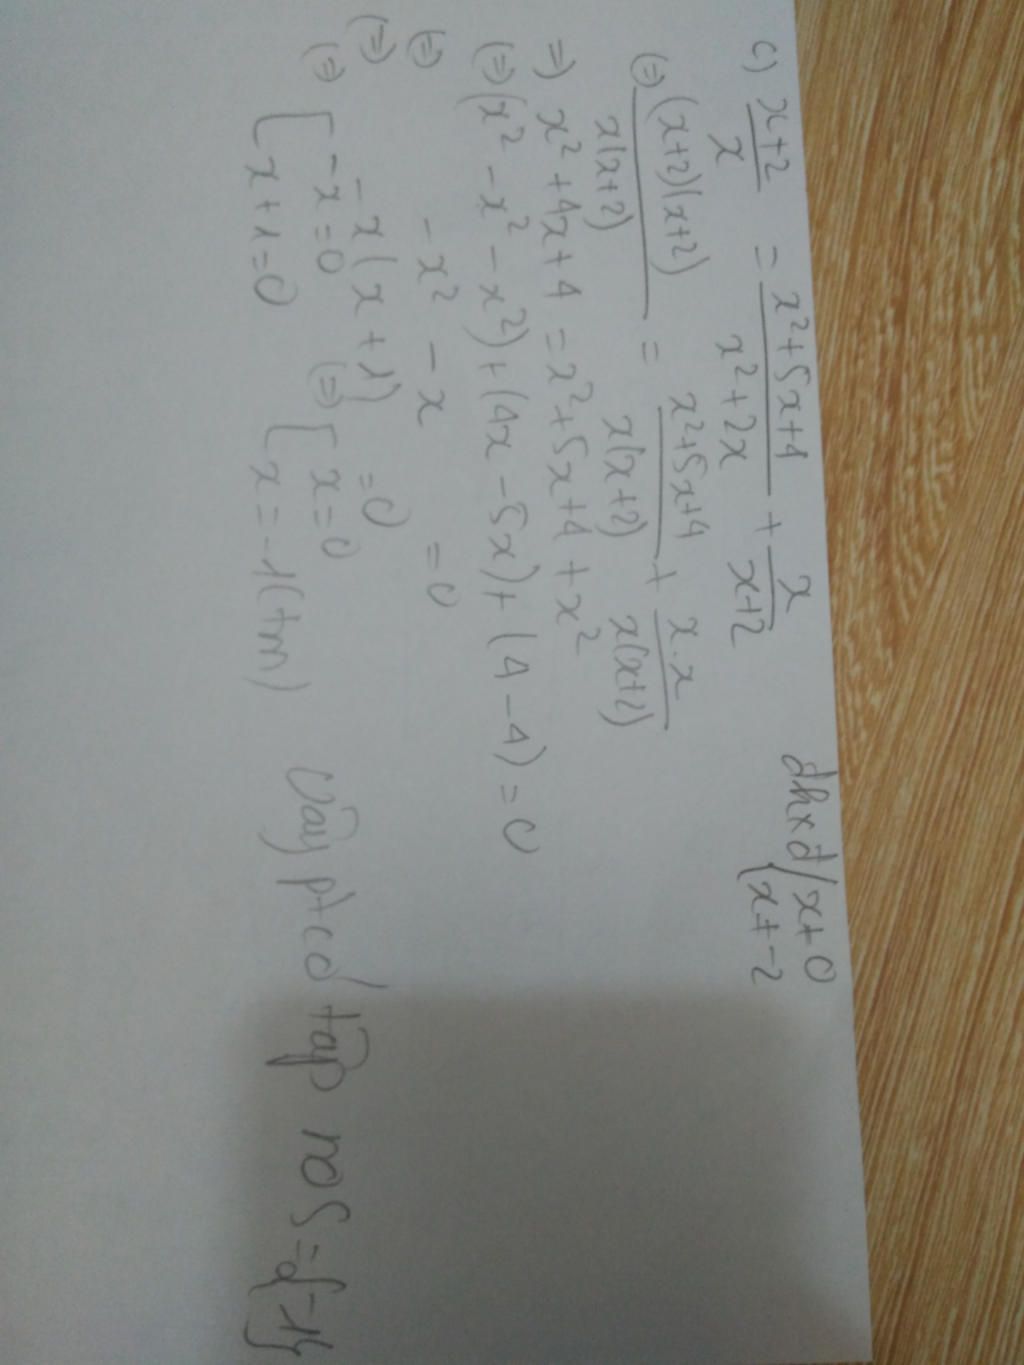 c) x+2/x = x²+5x+4/x²+2x + x/x+2 đkxđ { x ≠ 0
{ x ≠ -2
(=) (x+2)(x+2)/x(x+2) = x²+5x+4/x(x+2) + x.x/x(x+2)
=) x²+4x+4 = x²+5x+4+x²
(=) (x²-x²-x²)+(4x-5x)+(4-4)=0
(=) -x² - x = 0
(=) -x(x+1) =0
(=) [ -x=0 (=) [ x=0
[ x+1=0 [ x=-1(tm) Vậy pt có tập no S={-1}